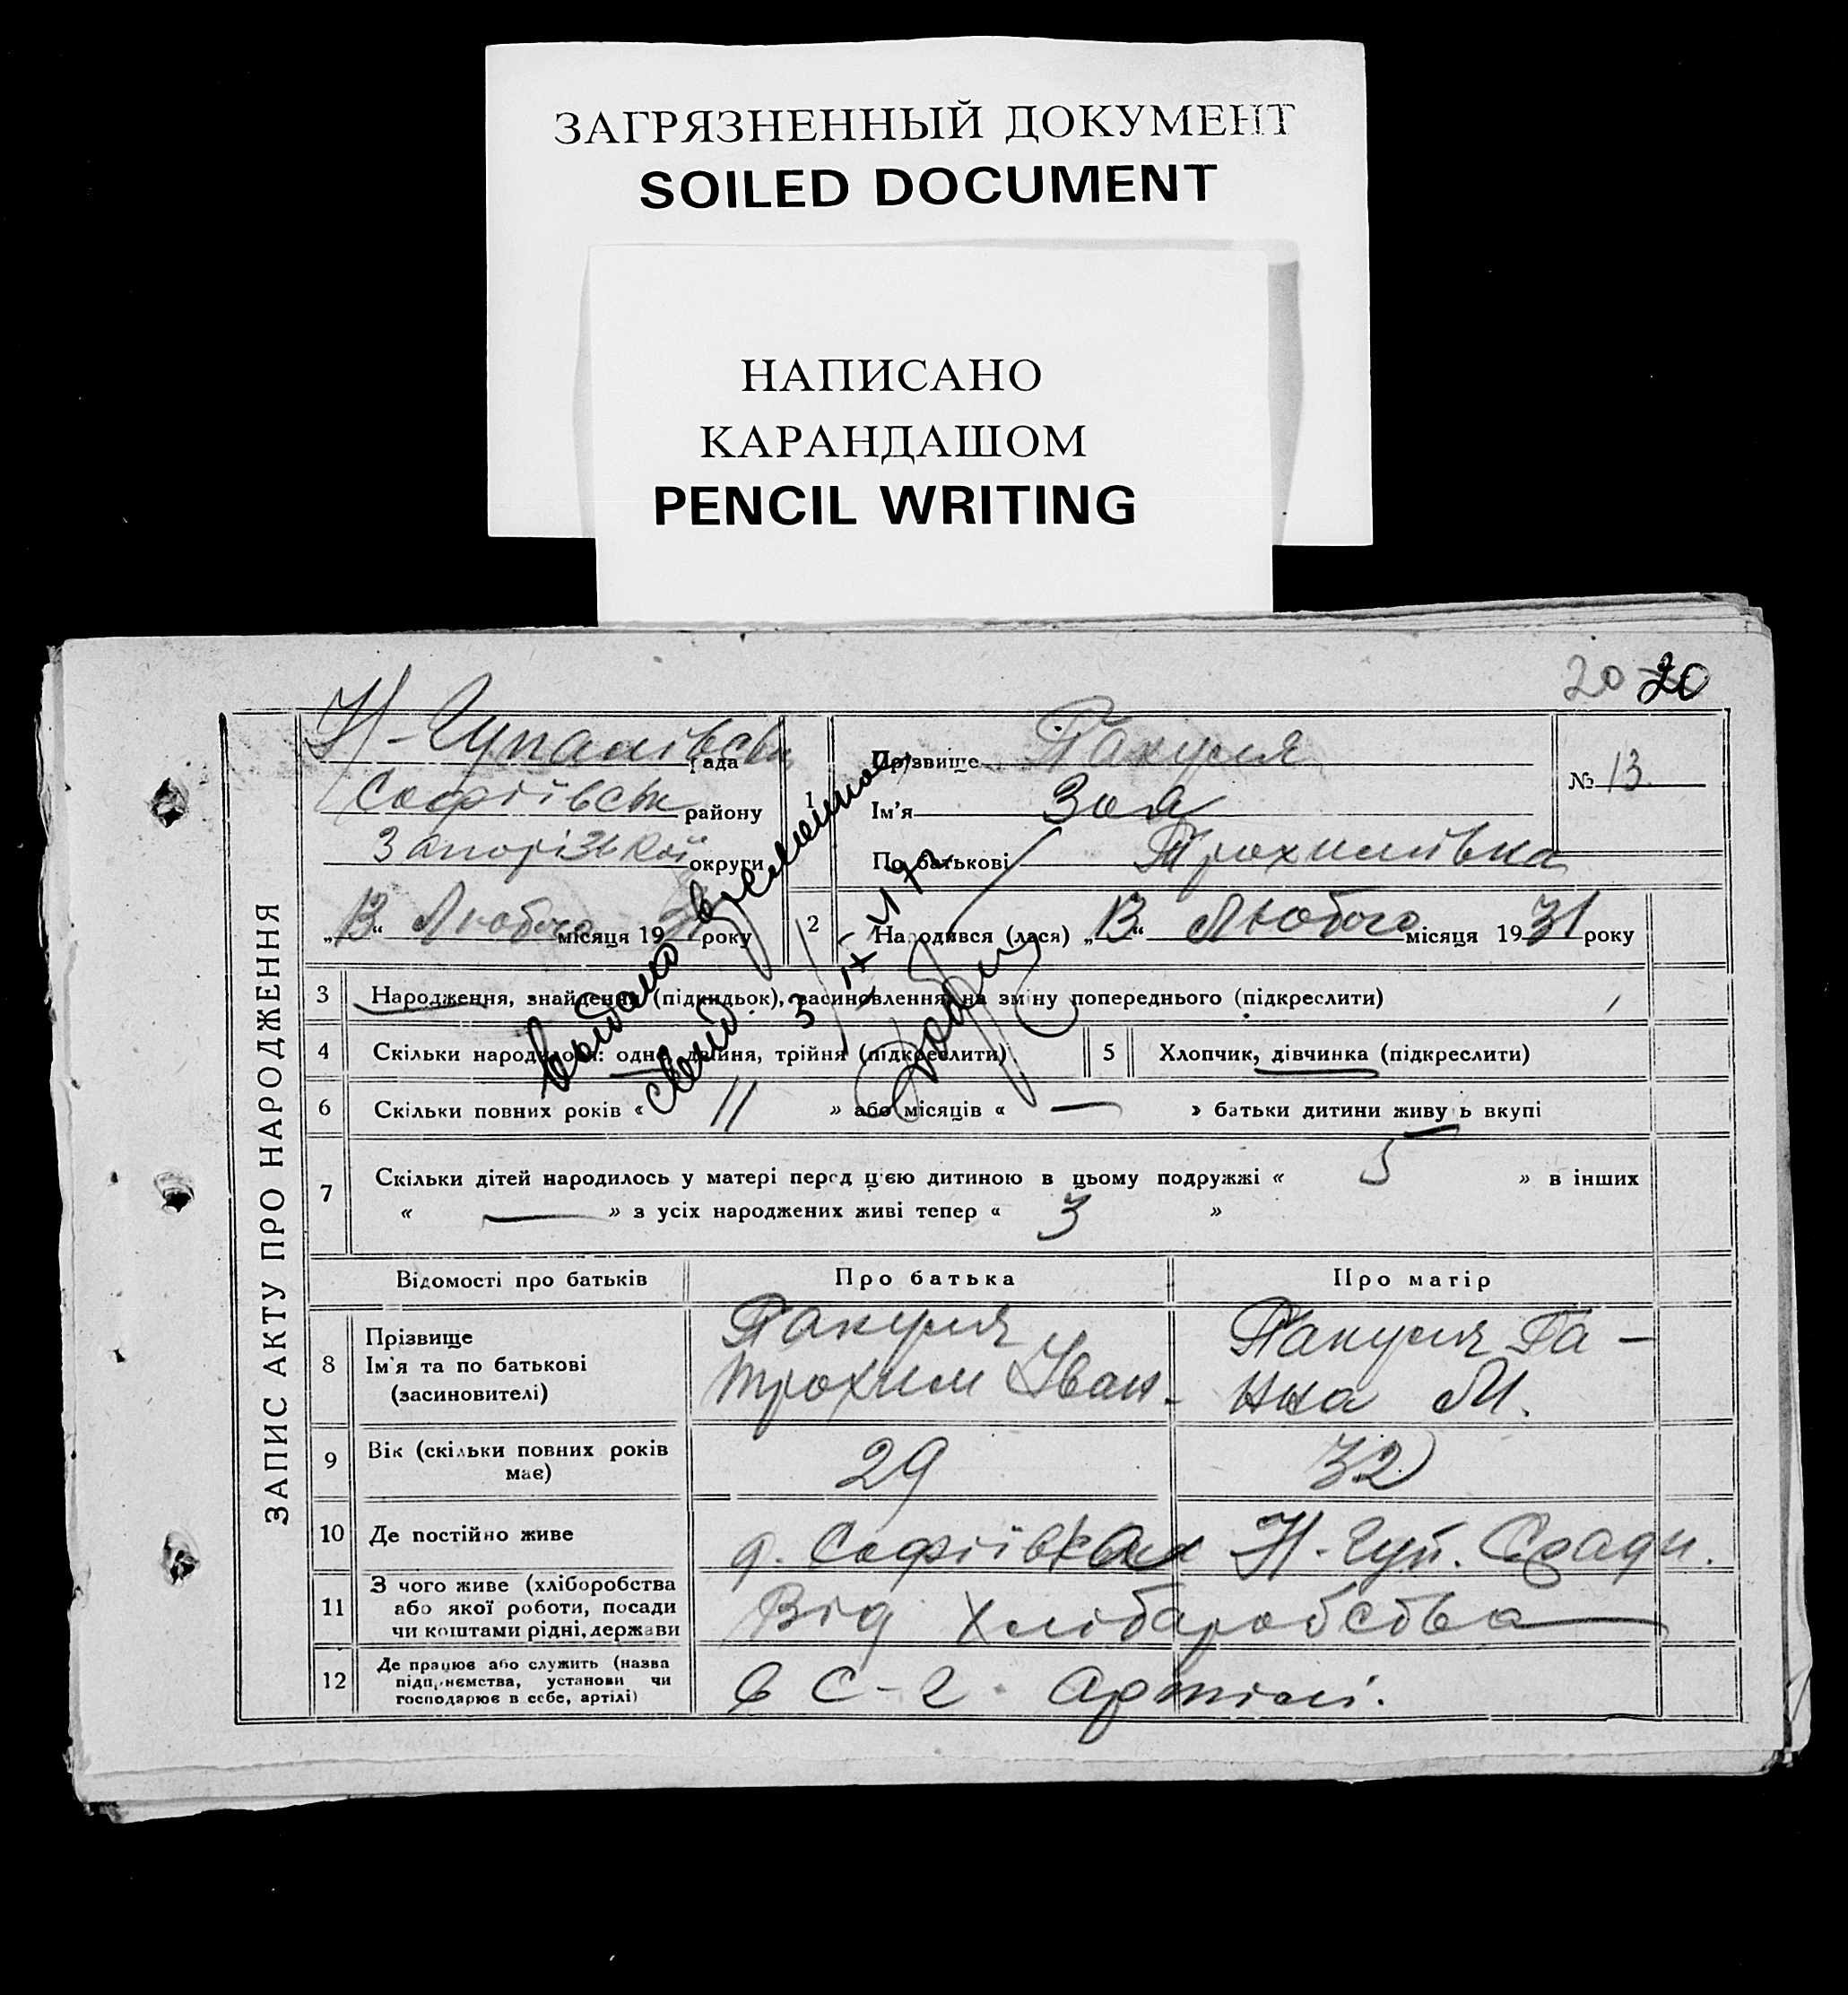 ЗАГРЯЗНЕННЫЙ ДОКУМЕНТ
SOILED DOCUMENT
НАПИСАНО
КАРАНДАШОМ
PENCIL WRITING
20 20
ЗАПИС АКТУ ПРО НАРОДЖЕННЯ
рада
Софіївськ району
Запорізької округи
„13“ Лютого місяця 1931 року
1
Прізвище Пакуля
Ім'я Зоя
По батькові Трохимівна
№ 13
2 Народився (лася) „13“ Лютого місяця 1931 року
Выдано временное
свид. 3/IX-47
3 Народження, знайдення (підкидьок), засиновлення, на зміну попереднього (підкреслити)
4 Скільки народилося: одно, двійня, трійня (підкреслити)
5 Хлопчик, дівчинка (підкреслити)
6 Скільки повних років « 11 » або місяців « — » батьки дитини живуть вкупі
7 Скільки дітей народилось у матері перед цією дитиною в цьому подружжі « 5 » в інших
« — » з усіх народжених живі тепер « 3 »
Відомості про батьків Про батька Про матір
8 Прізвище
Ім'я та по батькові
(засиновителі)
Пакуля
Трохим Іван-
Пакуля Га-
нна М.
9 Вік (скільки повних років
має)
29 32
10 Де постійно живе
Софіївка Н-Гуп.
11 З чого живе (хліборобства
або якої роботи, посади
чи коштами рідні, держави
Від хлібаробства
12 Де працює або служить (назва
підприємства, установи чи
господарює в себе, артілі)
в С-г. артілі.